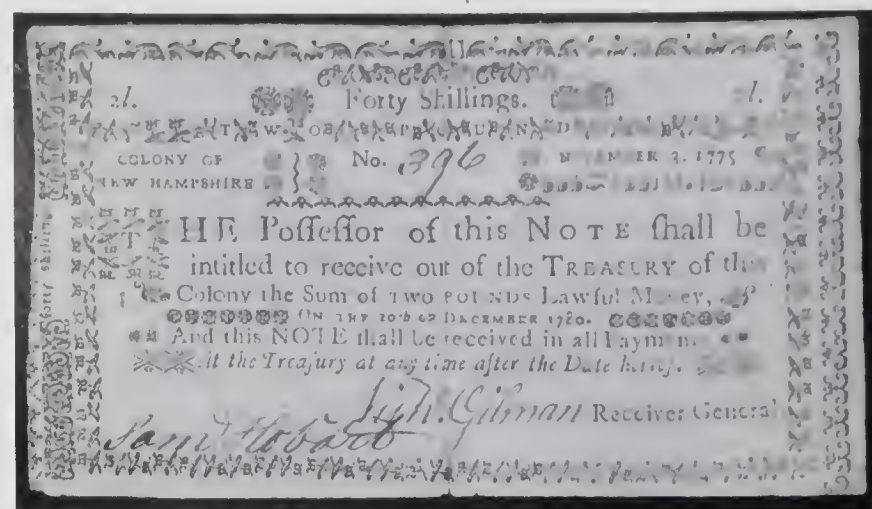 Forty Shillings.
COLONY OF
NEW HAMPSHIRE
No. 396
NOVEMBER 3. 1775
THE Poſſeſſor of this NOTE ſhall be
intitled to receive out of the TREASURY of this
Colony the Sum of TWO POUNDS Lawful Money,
ON THE 20th of DECEMBER 1780.
And this NOTE ſhall be received in all Payments
at the Treaſury at any time after the Date hereof.
Gilman Receiver General
Sam Hobart
forty shilling